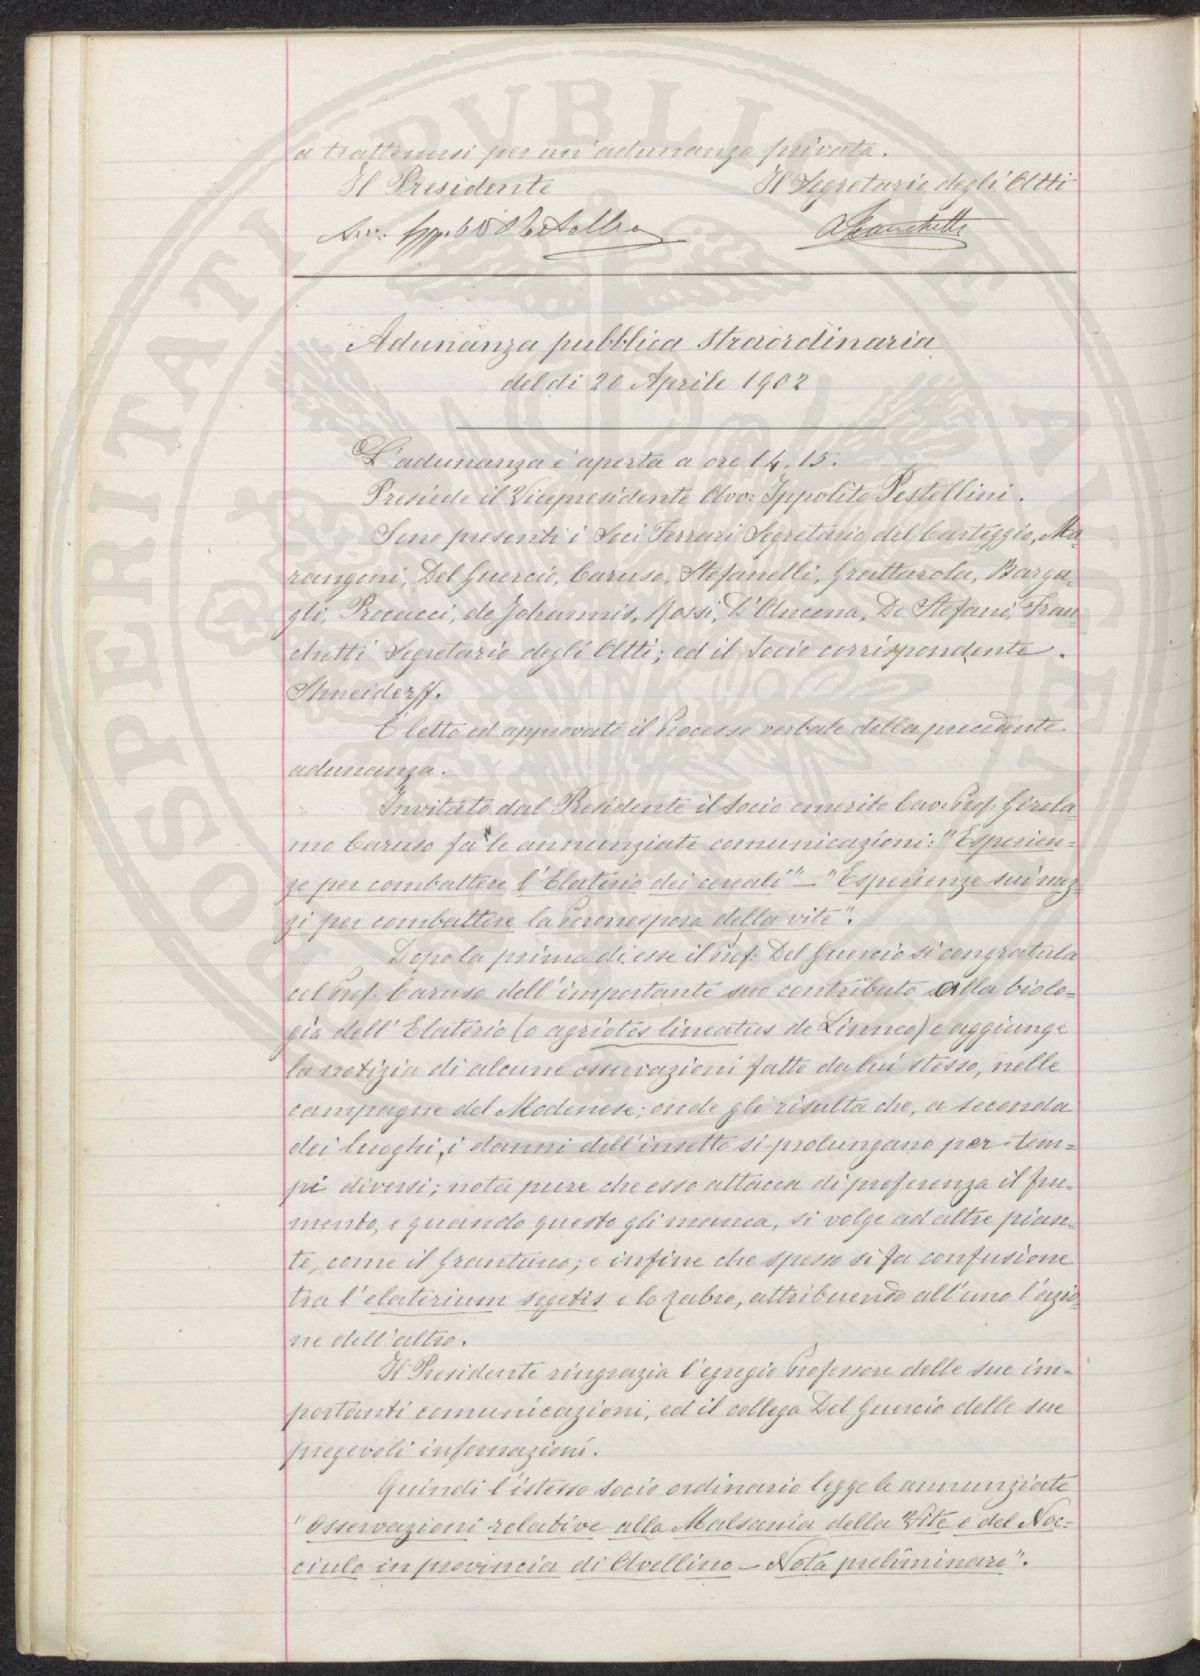 a trattenersi per un'adunanza privata.
Il Presidente Il Segretario degli Atti
Avv. Ipp. Pestellini AFranchetti
Adunanza pubblica straordinaria
del dì 20 Aprile 1902
L'adunanza è aperta a ore 14.15.
Presiede il Vicepresidente Avv: Ippolito Pestellini.
Sono presenti i Soci Ferrari Segretario del Carteggio, Ma-
rangoni, Del Guercio, Caruso, Stefanelli, Grattarola, Barga-
gli, Procacci, de Johannis, Rossi, D'Ancona, De Stefani, Fran-
chetti Segretario degli Atti; ed il Socio corrispondente
Shneiderff.
È letto ed approvato il Processo verbale della precedente
adunanza.
Invitato dal Presidente il Socio emerito Cav: Prof. Girola-
mo Caruso fa le annunziate comunicazioni: "Esperien-
ze per combattere l'Elaterio dei cereali" – "Esperienze sui mez-
zi per combattere la Peronospora della vite".
Dopo la prima di esse il Prof. Del Guercio si congratula
col Prof. Caruso dell'importante suo contributo alla biolo-
gia dell'Elaterio (o agriotes lineatus de Linneo) e aggiunge
la notizia di alcune osservazioni fatte da lui stesso, nelle
campagne del Modenese; onde gli risulta che, a seconda
dei luoghi, i danni dell'insetto si prolungano per tem-
pi diversi; nota pure che esso attacca di preferenza il fru-
mento, e quando questo gli manca, si volge ad altre pian-
te, come il granturco; e infine che spesso si fa confusione
tra l'elaterium segetis e lo zabro, attribuendo all'uno l'azio-
ne dell'altro.
Il Presidente ringrazia l'egregio Professore delle sue im-
portanti comunicazioni, ed il collega Del Guercio delle sue
pregevoli informazioni.
Quindi l'istesso socio ordinario legge le annunziate
"Osservazioni relative alla Malsania della Vite e del Noc-
ciulo in provincia di Avellino – Nota preliminare".